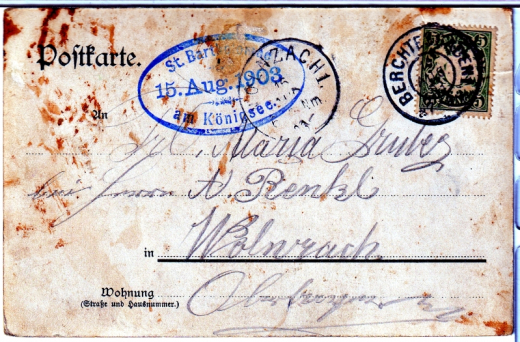 Postkarte.
St. Bart
15. Aug. 1903
am Königsee.
NZACH 1.
BERCHTE
5
An
Frl. Maria Gruber
Herrn A. Renkl
in Wolnzach
Wohnung
(Straße und Hausnummer.)